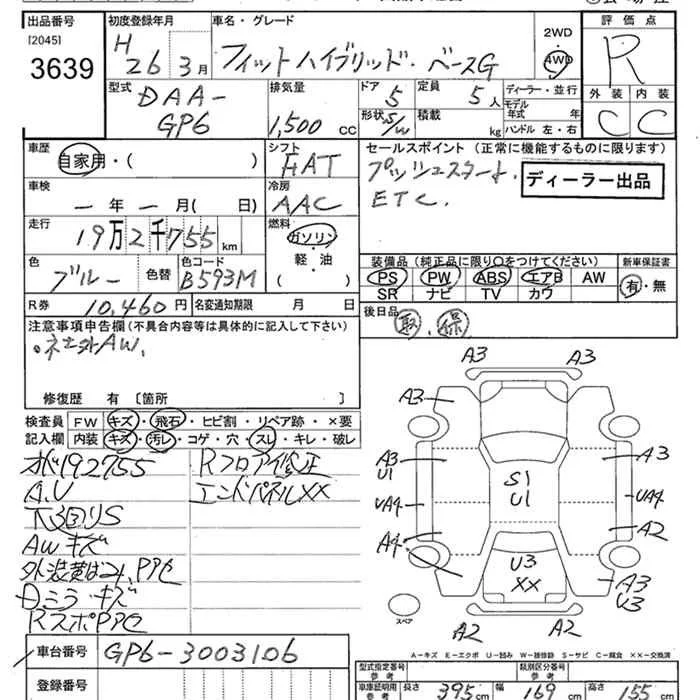 出品番号
[2045]
3639
初度登録年月
H 26 3月
車名・グレード
フィットハイブリッド・ベースG
2WD
4WD
評価点
R
外装 内装
C C
型式
DAA-
GP6
排気量
1,500 cc
ドア
5
定員
5人
形状 S/W
積載 kg
ディーラー・並行
モデル年式 年
ハンドル 左・右
車歴
自家用・( )
シフト
FAT
セールスポイント(正常に機能するものに限ります)
プッシュスタート、
ETC.
ディーラー出品
車検
ー年ー月( 日)
冷房
AAC
走行
19万2千755km
燃料
ガソリン
軽・油
( )
色
ブルー
色替
色コード
B593M
装備品(純正品に限り○をつけてください)
PS PW ABS エアB AW
SR ナビ TV カワ
新車保証書
有・無
R券 10,460円
名変通知期限 月 日
後日品 取・保
注意事項申告欄(不具合内容等は具体的に記入して下さい)
。社外AW.
修復歴 有〔箇所 〕
検査員
記入欄
FW キズ・飛石・ヒビ割・リペア跡・×要
内装 キズ・汚レ・コゲ・穴・スレ・キレ・破レ
192755
A.U
下回りS
AWキズ
PPセ
Dミラーキズ
RスポPPセ
Rフロア修正
エンドパネルXX
A3 A3
A3
A3
U1
A3
UA4
UA4
A4
A2
S1
U1
U3
XX
A3
U3
A2
A2
スペア
A-キズ E-エクボ U-凹み W-補修跡 S-サビ C-腐食 XX-交換済
車台番号
GP6-3003106
登録番号
型式指定番号
参考
類別区分番号
参考
車庫証明用
参考
長さ 395cm
幅 169cm
高さ 155cm